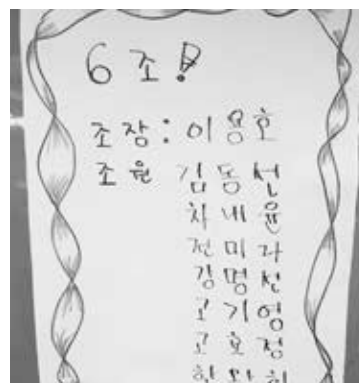 6 조!
조장: 이용호
조원 김동선
차내윤
전미라
김명선
고기영
고호정